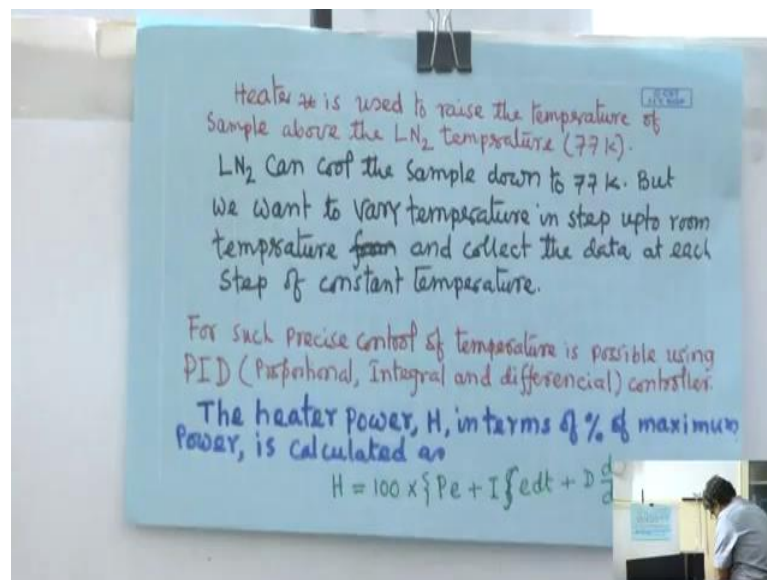 Heater is used to raise the temperature of
Sample above the LN2 temprature (77 K).
LN2 can cool the sample down to 77 K. But
we want to vary temperature in step upto room
temprature and collect the data at each
Step of constant temperature.
For such precise control of temperature is possible using
PID (Proportional, Integral and differencial) controller.
The heater power, H, in terms of % of maximum
Power, is calculated as
H = 100 x { Pe + I ∫ edt + D d